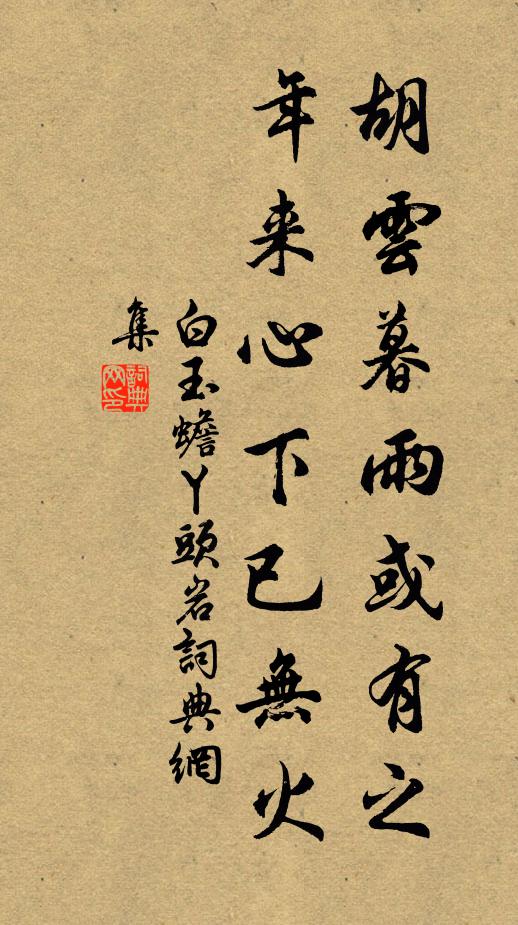 胡雲暮雨或有之
年来心下已無火
白玉蟾丫頭岩詞典網
集
詞典網印